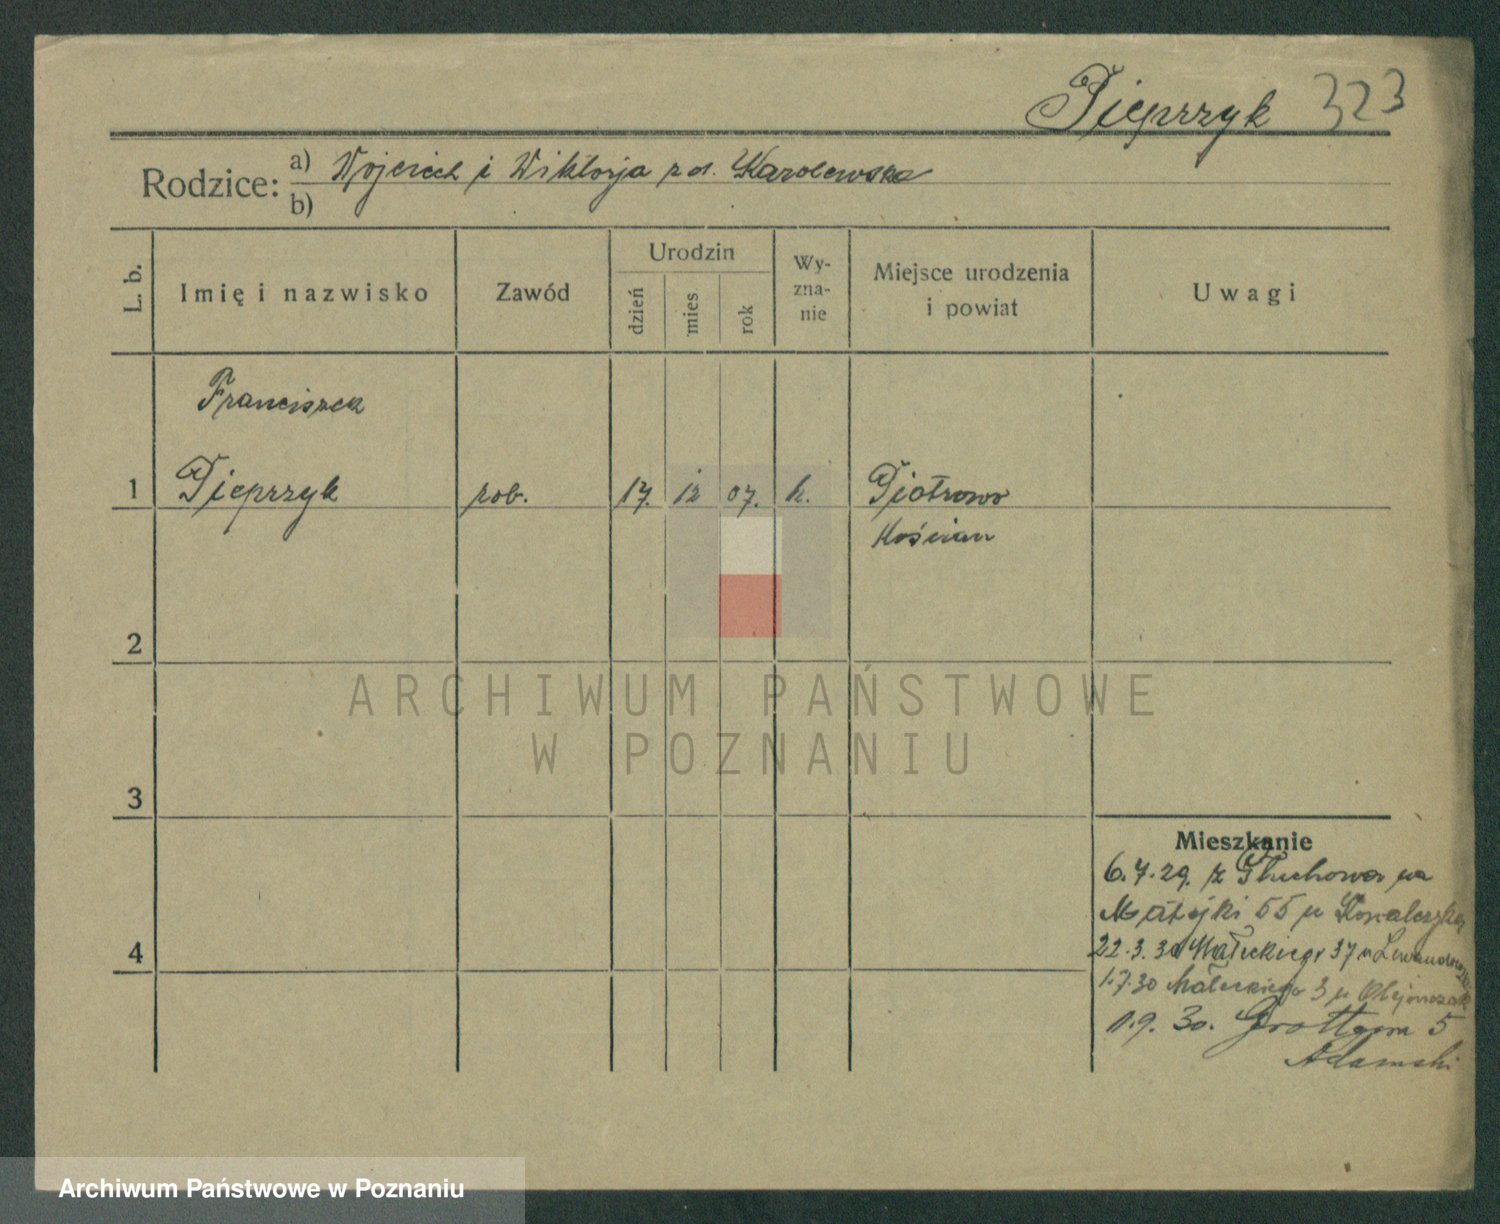 Pieprzyk 323
Rodzice: a) Wojciech i Wiktorja z d. Karolewska
b)
L. b.
Imię i nazwisko
Zawód
Urodzin
dzień
mies
rok
Wy-
zna-
nie
Miejsce urodzenia
i powiat
Uwagi
Franciszek
1 Pieprzyk rob. 17. 12 07. k. Piotrowo
Kościan
2
3
4
ARCHIWUM PAŃSTWOWE
W POZNANIU
Mieszkanie
6.7.29. z Głuchowa na
Matejki 55 u Kowalczyka
22.3.30 Małeckiego 37 u Lewandowska
1.7.30 Małeckiego 3 u Olejniczak
1.9.30. Grottgera 5
Adamski
Archiwum Państwowe w Poznaniu